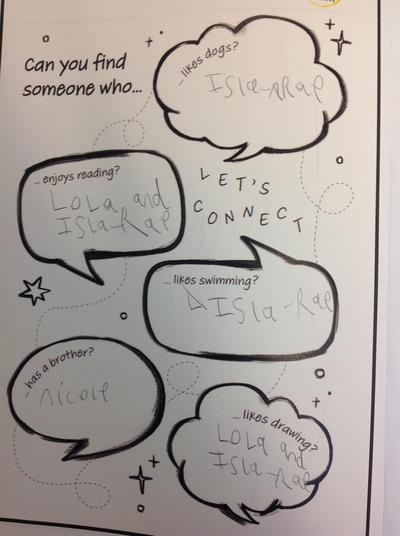 Can you find
someone who...
... likes dogs?
Isla-Rae
... enjoys reading?
Lola and
Isla-Rae
LET'S
CONNECT
... likes swimming?
Isla-Rae
... has a brother?
nicole
... likes drawing?
Lola and
Isla-Rae